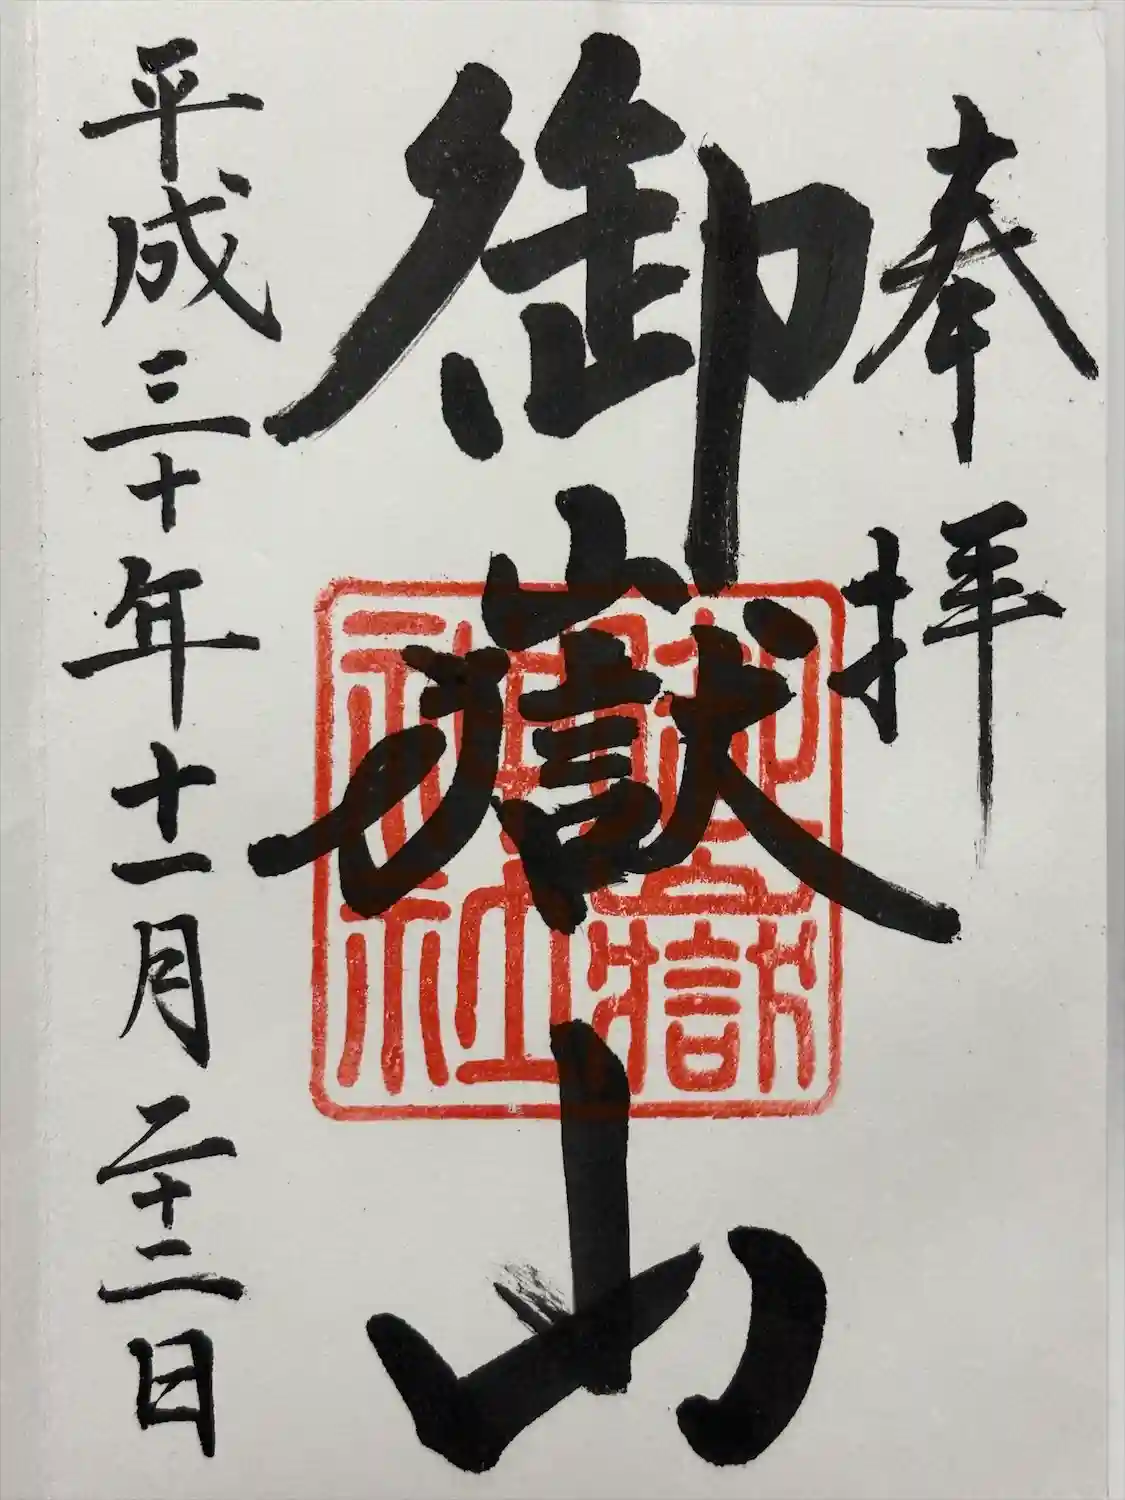 奉拝
御嶽山
御嶽神社
平成三十年十一月二十二日